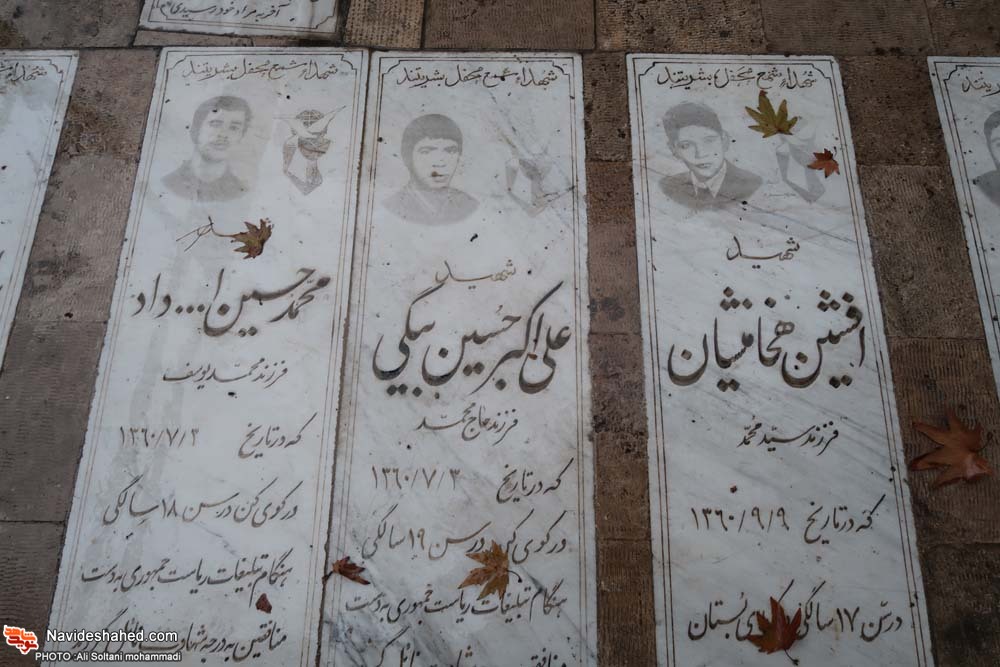 آخر به مراد خود رسیدی
شهداء شمع محفل بشریتند
شهید
افشین هخامنشیان
فرزند سید محمد
که در تاریخ ۱۳۶۰/۹/۹
در سن ۱۷ سالگی
بستان
شهداء شمع محفل بشریتند
شهید
علی اکبر حسین بیگی
فرزند حاج محمد
که در تاریخ ۱۳۶۰/۷/۳
در کوی در سن ۱۹ سالگی
هنگام تبلیغات ریاست جمهوری به دست
شهداء شمع محفل بشریتند
محمد حسین ا... داد
فرزند محمد یوسف
که در تاریخ ۱۳۶۰/۷/۲
در کوی کن در سن ۱۸ سالگی
هنگام تبلیغات ریاست جمهوری به دست
منافقین به درجه شهادت
نوید شاهد
Navideshahed.com
PHOTO :Ali Soltani mohammadi